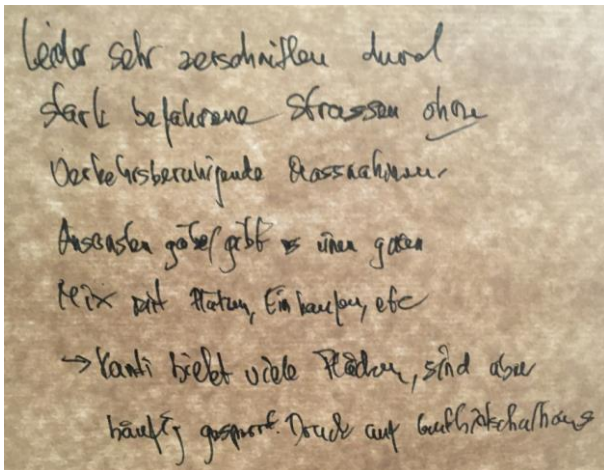 Leider sehr zerschnitten durch
stark befahrene Strassen ohne
Verkehrsberuhigende Massnahmen.
Ansonsten gäbe/gibt es einen guten
Mix mit Natur, Einkaufen, etc
→ Kanti bietet viele Flächen, sind aber
häufig gesperrt. Druck auf